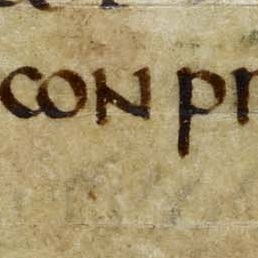 con pr